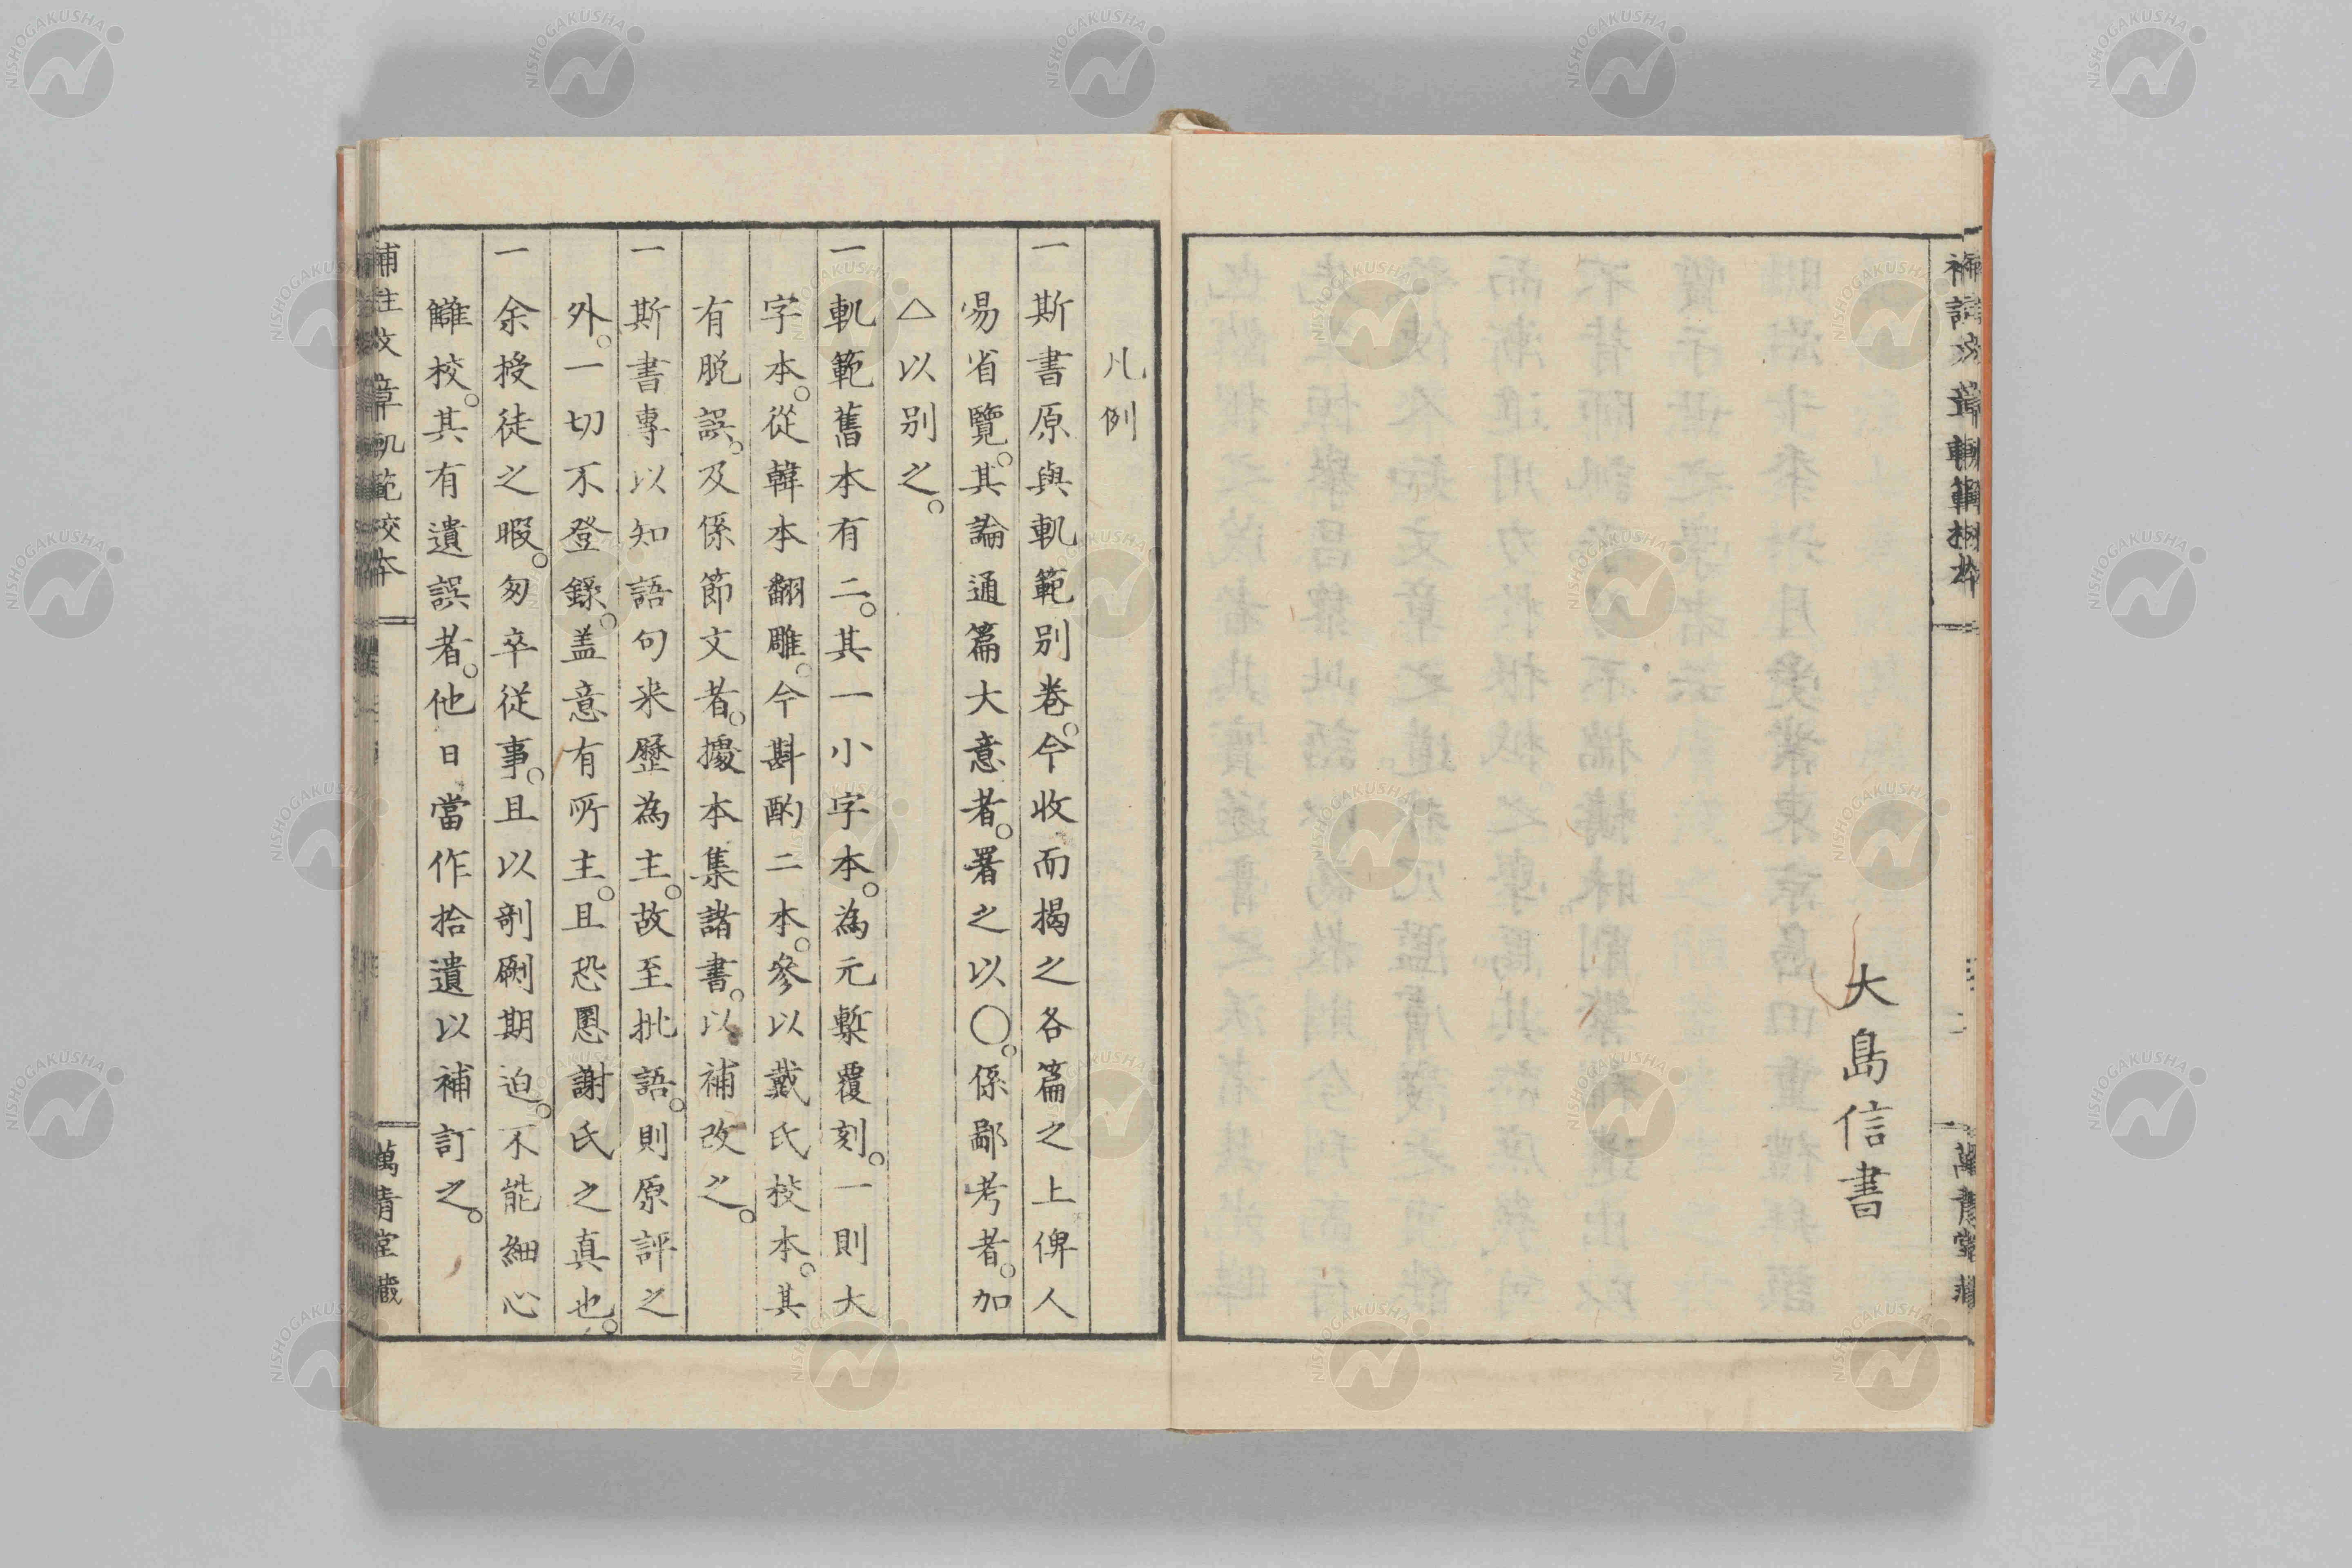 大島信書
凡例
一斯書原與軌範別卷。今收而揭之各篇之上俾人
易省覽。其論通篇大意者。署之以〇。係鄙考者。加
△以别之。
一軌範舊本有二。其一小字本。為元槧覆刻。一則大
字本。從韓本翻雕。今斟酌二本。參以戴氏校本。其
有脱誤。及係節文者。據本集諸書。以補改之。
一斯書專以知語句來歷為主。故至批語。則原評之
外。一切不登錄。盖意有所主。且恐慁謝氏之真也。
一余授徒之暇。匆卒從事。且以剞劂期迫。不能細心
讎校。其有遺誤者。他日當作拾遺以補訂之。
補註文章軌範校本
萬青堂藏
NISHOGAKUSHA